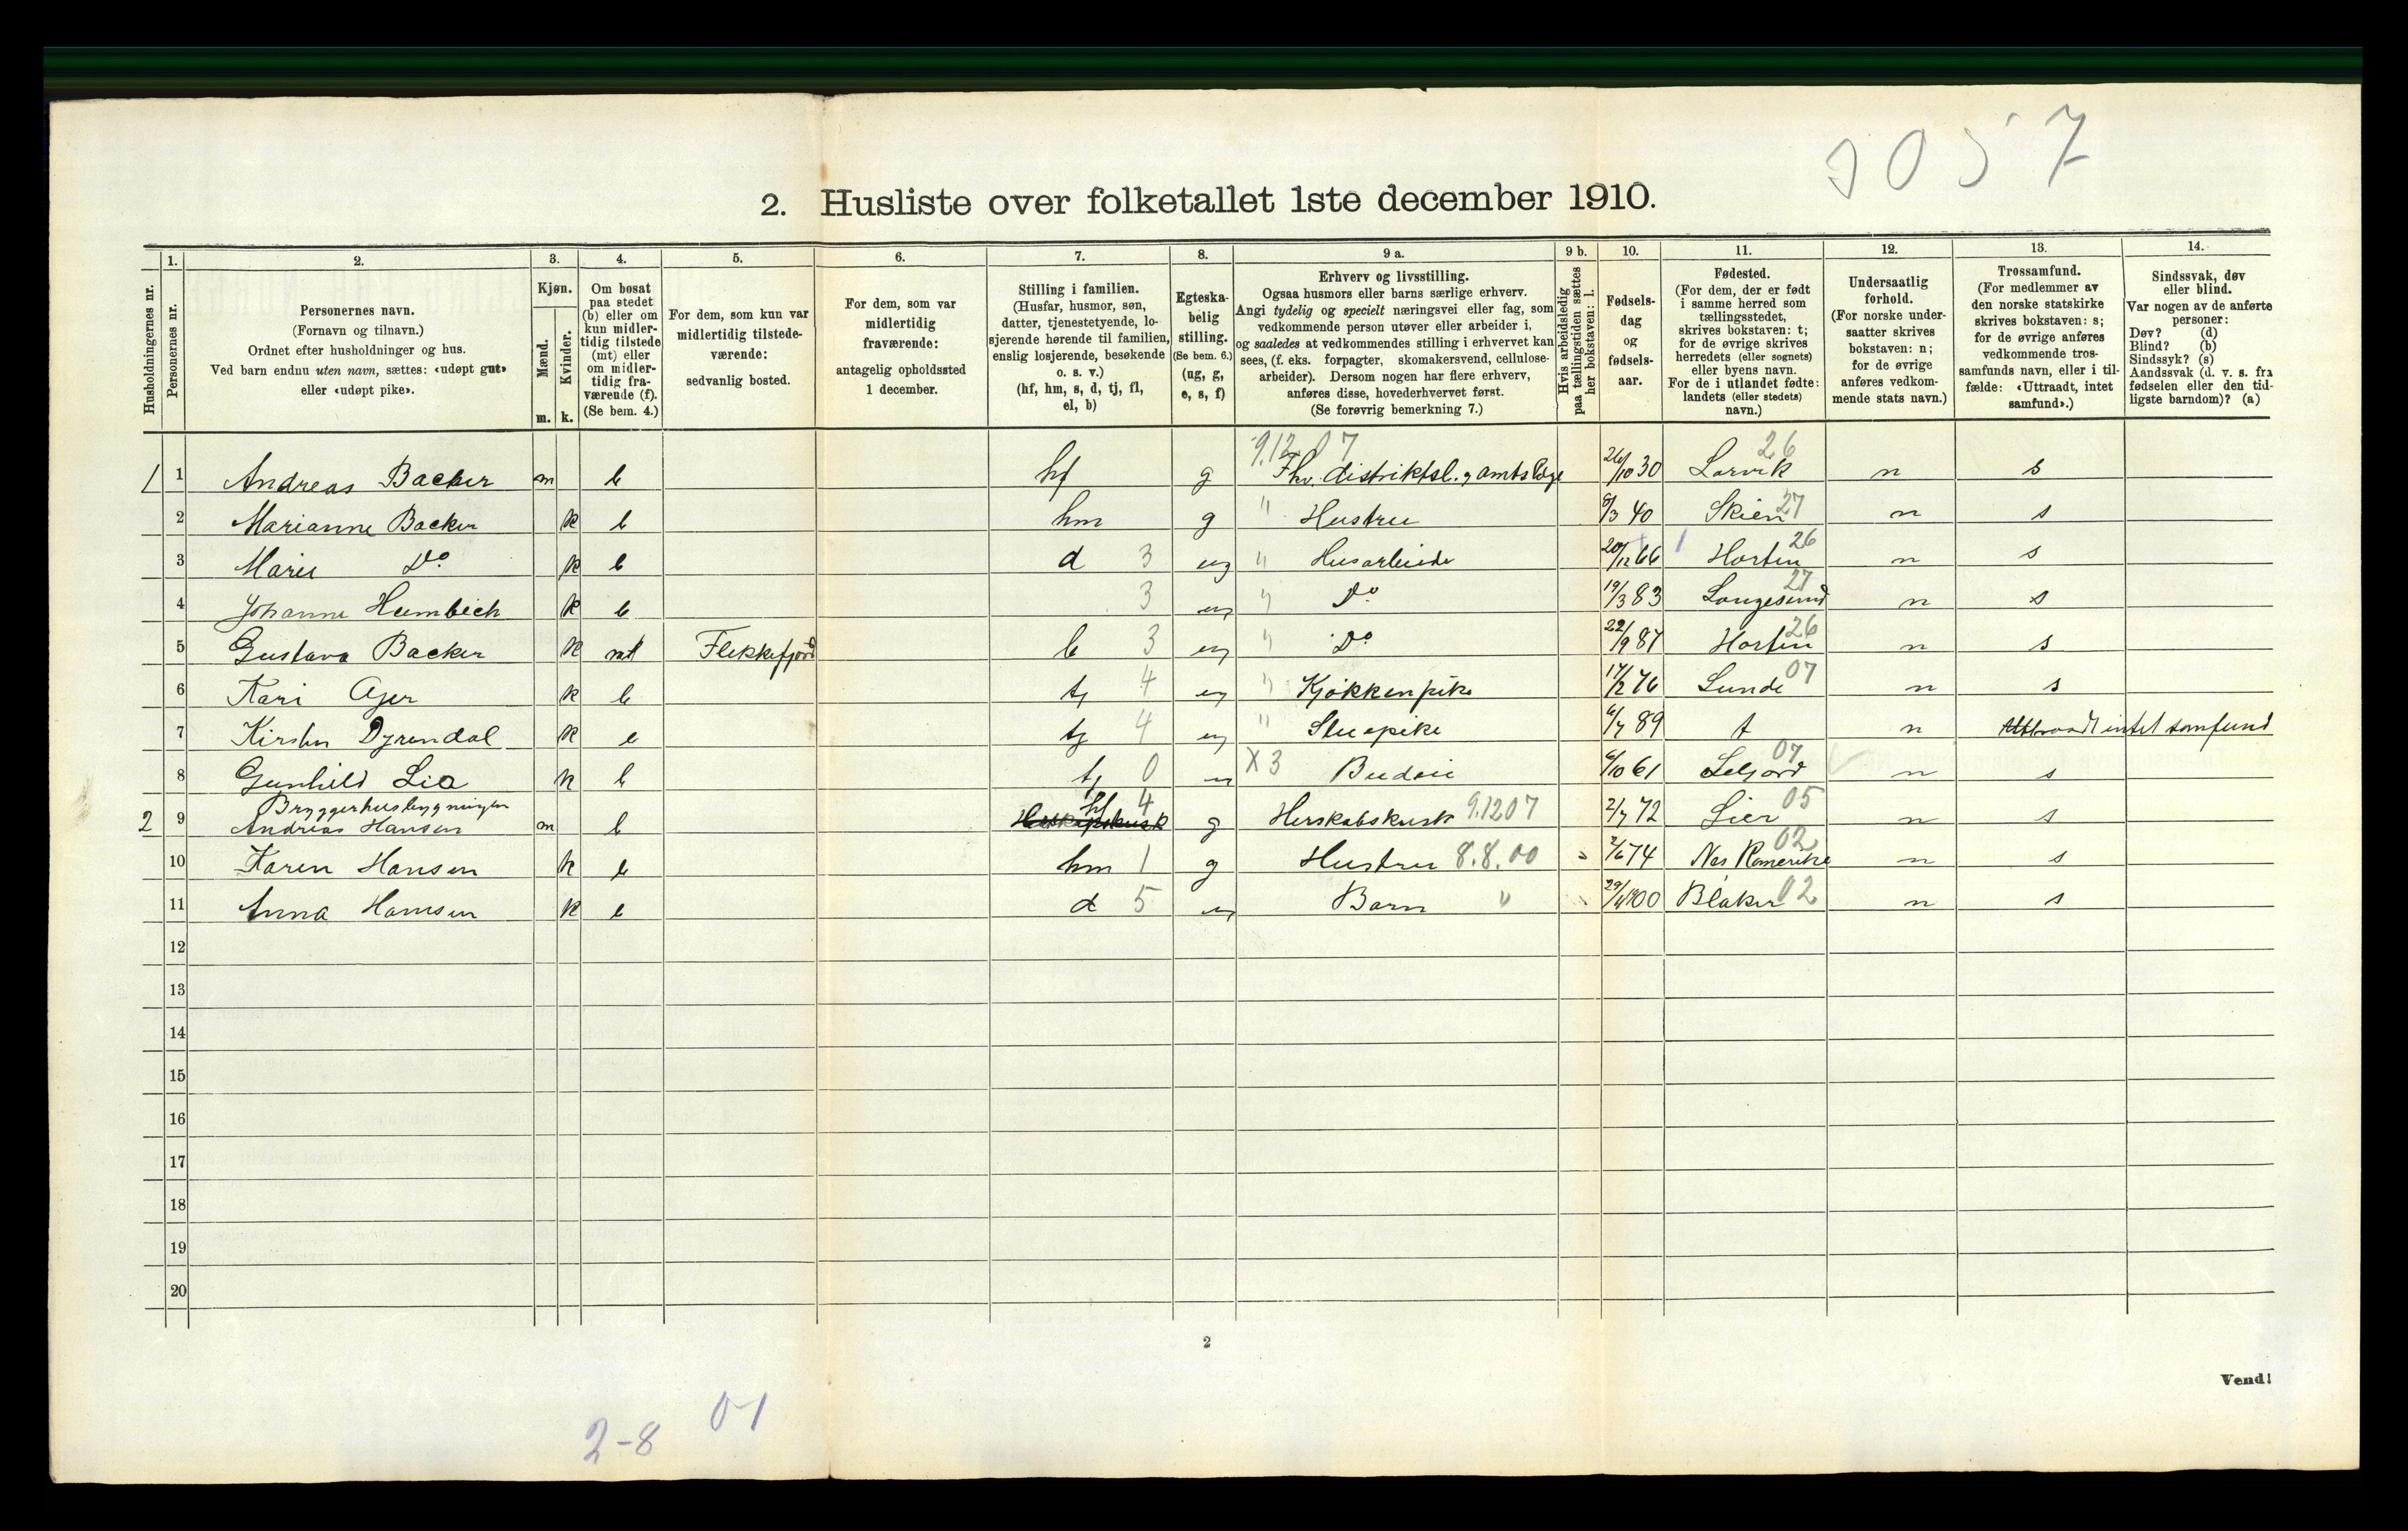 9057
2. Husliste over folketallet 1ste december 1910.
Husholdningernes nr.
1. Personernes nr.
2. Personernes navn.
(Fornavn og tilnavn.)
Ordnet efter husholdninger og hus.
Ved barn endnu uten navn, sættes: «udøpt gut»
eller «udøpt pike».
3. Kjøn.
Mænd. m.
Kvinder. k.
4. Om bosat
paa stedet
(b) eller om
kun midler-
tidig tilstede
(mt) eller
om midler-
tidig fra-
værende (f).
(Se bem. 4.)
5. For dem, som kun var
midlertidig tilstede-
værende:
sedvanlig bosted.
6. For dem, som var
midlertidig
fraværende:
antagelig opholdssted
1 december.
7. Stilling i familien.
(Husfar, husmor, søn,
datter, tjenestetyende, lo-
sjerende hørende til familien,
enslig losjerende, besøkende
o. s. v.)
(hf, hm, s, d, tj, fl,
el, b)
8. Egteska-
belig
stilling.
(Se bem. 6.)
(ug, g,
e, s, f)
9 a. Erhverv og livsstilling.
Ogsaa husmors eller barns særlige erhverv.
Angi tydelig og specielt næringsvei eller fag, som
vedkommende person utøver eller arbeider i,
og saaledes at vedkommendes stilling i erhvervet kan
sees, (f. eks. forpagter, skomakersvend, cellulose-
arbeider). Dersom nogen har flere erhverv,
anføres disse, hovederhvervet først.
(Se forøvrig bemerkning 7.)
9 b. Hvis arbeidsledig
paa tællingstiden sættes
her bokstaven: l.
10. Fødsels-
dag
og
fødsels-
aar.
11. Fødested.
(For dem, der er født
i samme herred som
tællingsstedet,
skrives bokstaven: t;
for de øvrige skrives
herredets (eller sognets)
eller byens navn.
For de i utlandet fødte:
landets (eller stedets)
navn.)
12. Undersaatlig
forhold.
(For norske under-
saatter skrives
bokstaven: n;
for de øvrige
anføres vedkom-
mende stats navn.)
13. Trossamfund.
(For medlemmer av
den norske statskirke
skrives bokstaven: s;
for de øvrige anføres
vedkommende tros-
samfunds navn, eller i til-
fælde: «Uttraadt, intet
samfund».)
14. Sindssvak, døv
eller blind.
Var nogen av de anførte
personer:
Døv? (d)
Blind? (b)
Sindssyk? (s)
Aandssvak (d. v. s. fra
fødselen eller den tid-
ligste barndom)? (a)
9.12 07 26
1 1 Andreas Backer m b hf g Fhv. distriktsl. og amtslæge 26/10 30 Larvik n s
2 Marianne Backer k b hm g " Hustru 8/3 40 Skien 27 n s
3 Marie Do k b d 3 ug " Husarbeide 20/12 66 Horten 26 n s
4 Johanne k b 3 ug " Do 19/3 83 Langesund 27 n s
5 Gustava Backer k mt Flekkefjord b 3 ug " Do 22/9 87 Horten 26 n s
6 Kari k b tj 4 ug " Kjøkkenpike 17/2 76 Lunde 07 n s
7 Kirsten Dyrendal k b tj 4 ug " Stuepike 6/7 89 t n Uttraadt intet samfund
8 Gunhild Lia k b tj 0 ug X3 Budeie 6/10 61 Seljord 07 n s
Bryggerhusbygningen
2 9 Andreas Hansen m b Herskapskusk hf 4 g Herskabskusk 9.12 07 2/7 72 Lier 05 n s
10 Karen Hansen k b hm 1 g Hustru 8.8.00 2/6 74 Nes Romerike 02 n s
11 Anna Hansen k b d 5 ug Barn " 29/4 1900 Blaker 02 n s
12
13
14
15
16
17
18
19
20
2
Vend!
2-8 01